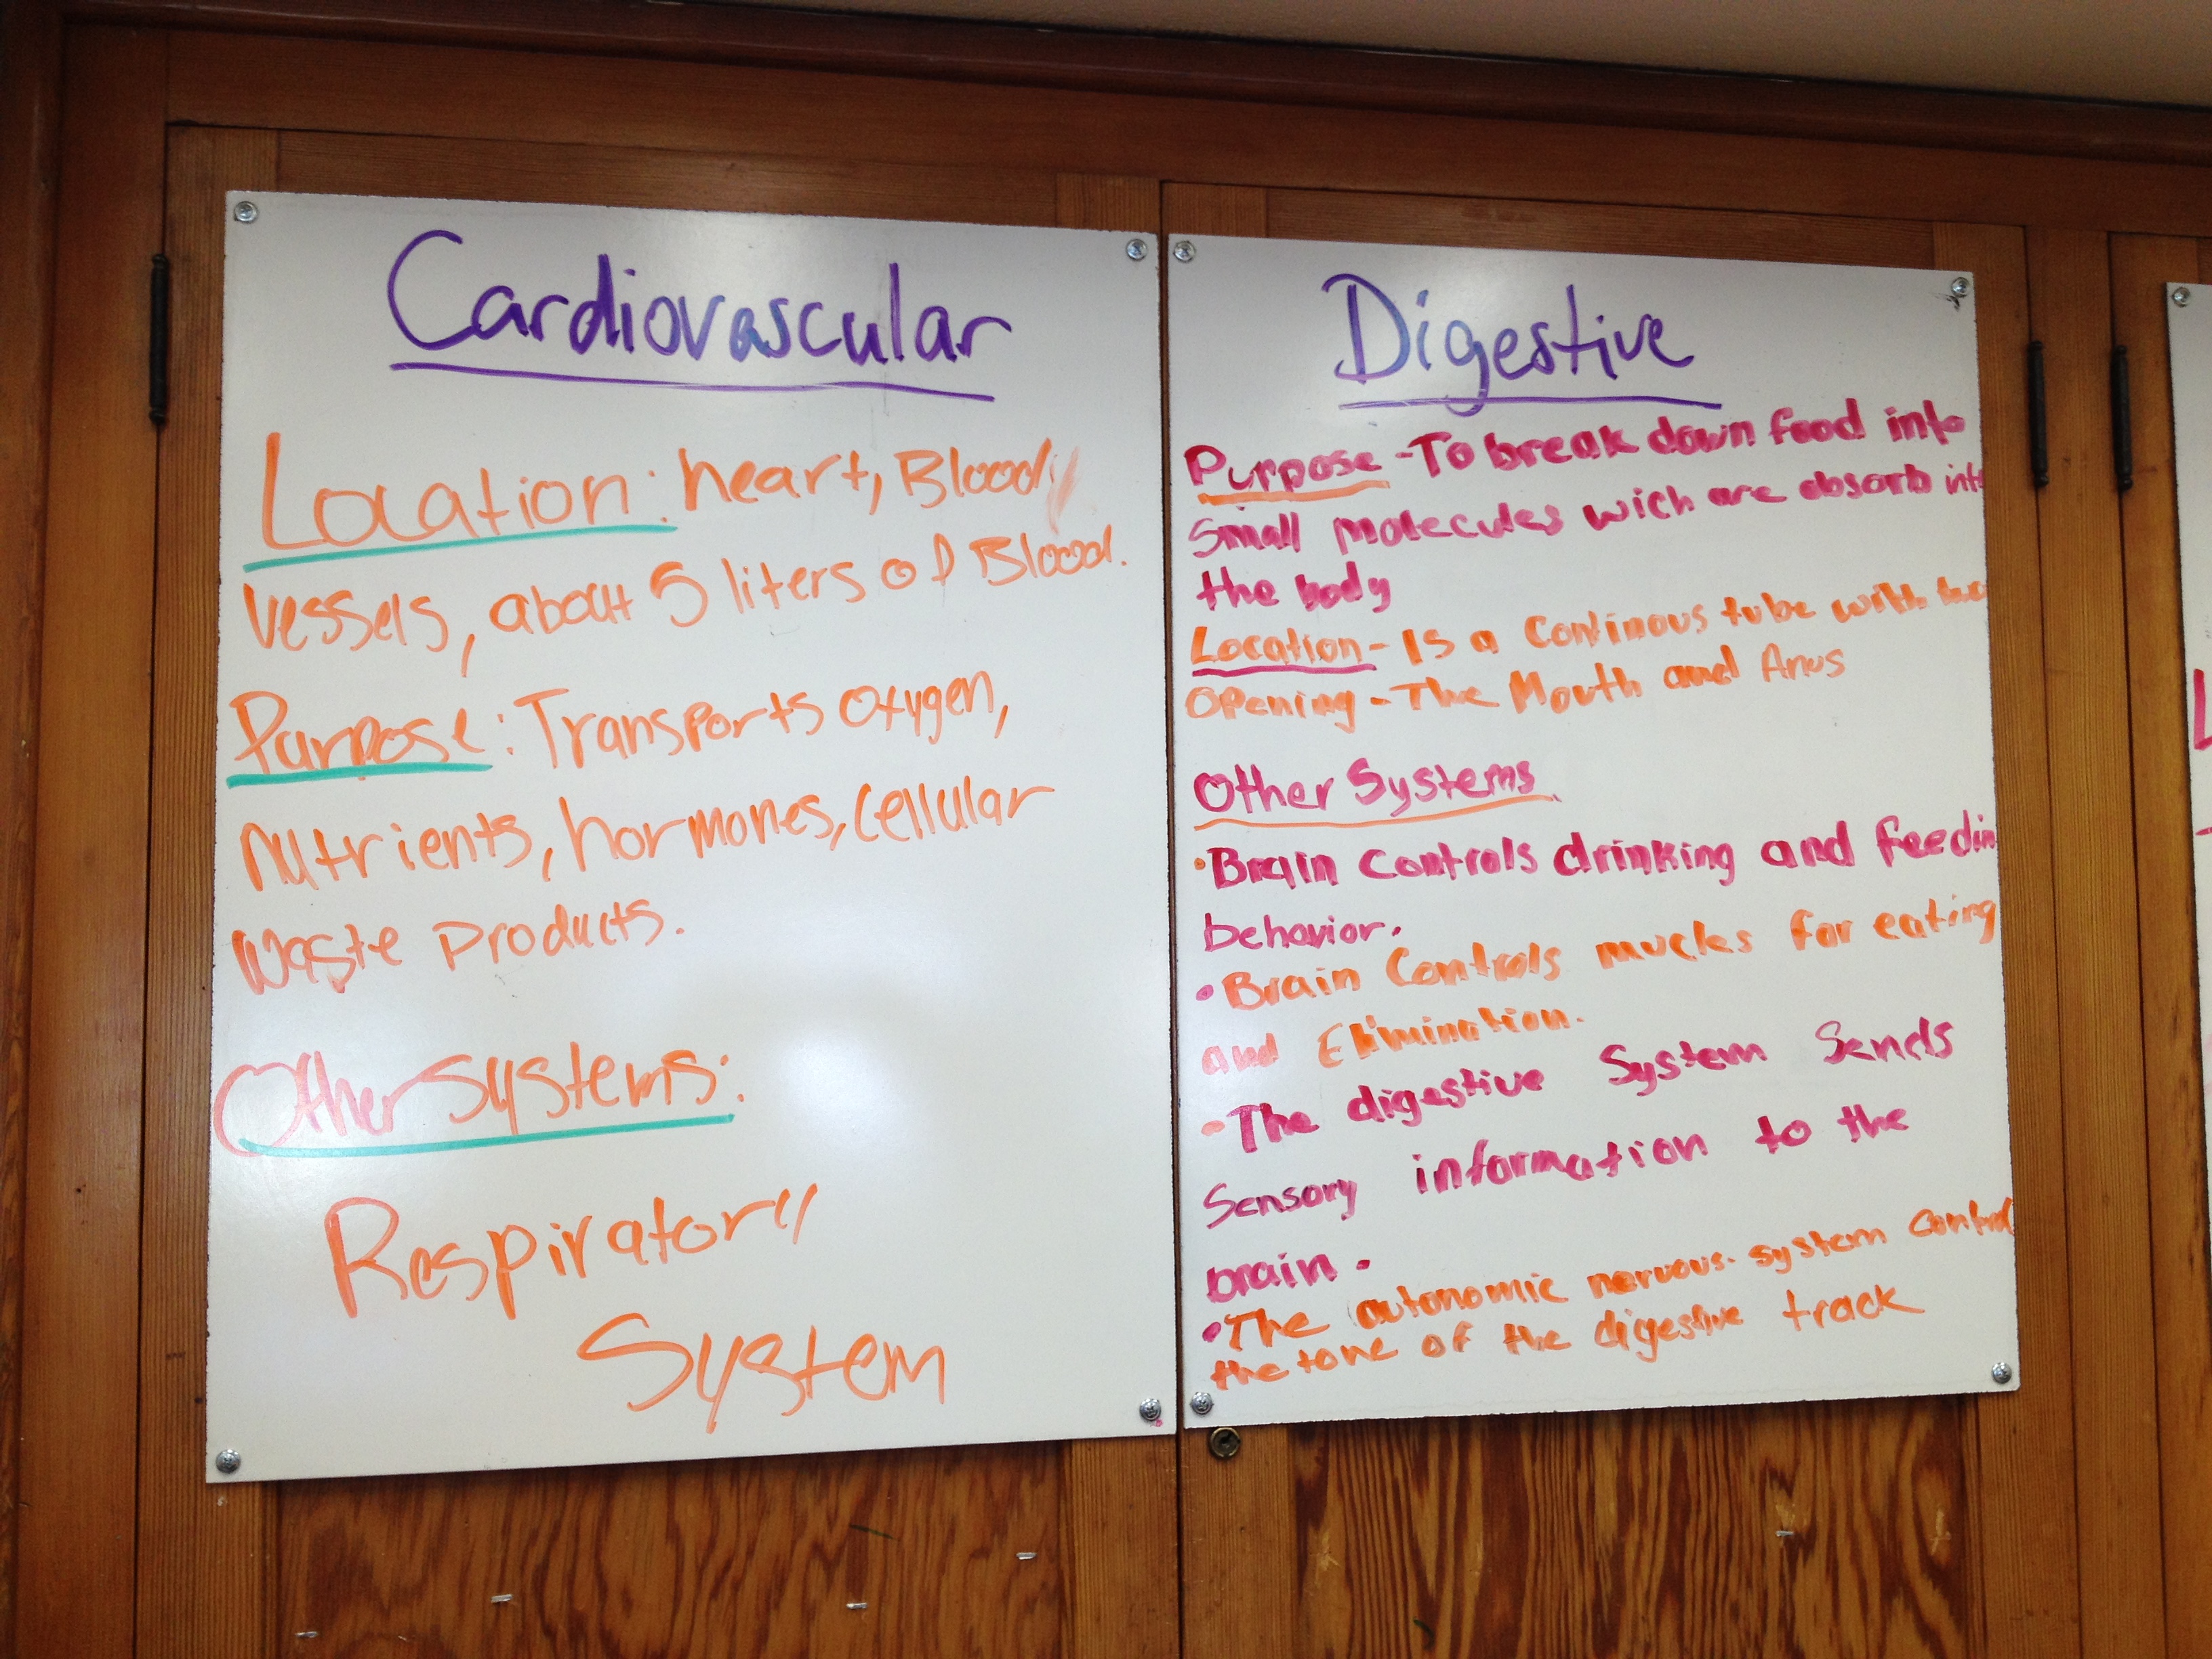 Cardiovascular
Location: heart, Blood
Vessels, about 5 liters of Blood.
Purpose: Transports Oxygen,
nutrients, hormones, cellular
waste products.
Other Systems:
Respiratory
System
Digestive
Purpose - To break down food into
Small molecules wich are absorb into
the body
Location - Is a Continous tube with two
Opening - The Mouth and Anus
Other Systems
• Brain Controls drinking and feedin
behavior.
• Brain Controls mucles for eating
and Elimination.
- The digestive System Sends
Sensory information to the
brain.
• The autonomic nervous system control
the tone of the digestive track
L